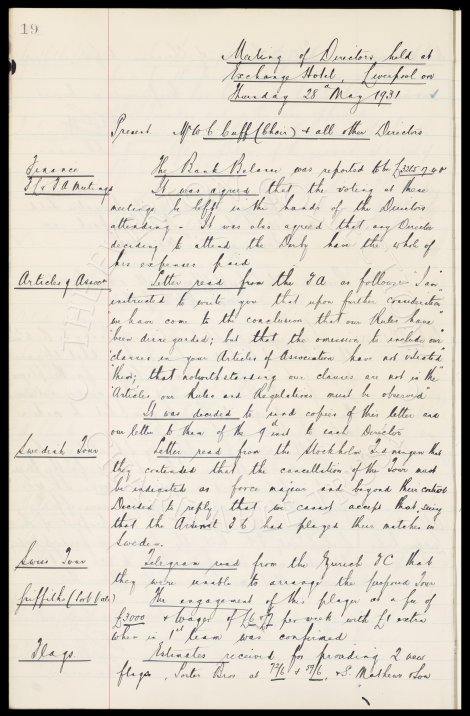 19
Meeting of Directors held at
Exchange Hotel, Liverpool on
Thursday 28th May 1931
Present Mr W C Cuff (Chair) & all other Directors
Finance The Bank Balance was reported to be £
F.L. & F.A. Meetings It was agreed that the voting at these
meetings be left in the hands of the Directors
attending - It was also agreed that any Director
deciding to attend the Derby have the whole of
his expenses paid
Articles of Assocn Letter read from the F A as follows:- "I am
instructed to write you that upon further consideration
we have come to the conclusion that our Rules have
been disregarded; but that the omission to include our
clauses in your Articles of Association have not vitiated
them; that notwithstanding our clauses are not in the
Articles, our Rules and Regulations must be observed"
It was decided to send copies of this letter and
our letter to them of the 9 inst to each Director
Swedish Tour Letter read from the Stockholm that
they contended that the cancellation of the Tour must
be indicated as force majeur and beyond their control
Decided to reply that we cannot accept that, seeing
that the Arsenal F C had played their matches in
Sweden.
Swiss Tour Telegram read from the Zurich F C that
they were unable to arrange the proposed Tour
Griffiths (Port Vale) The engagement of this player at a fee of
£3000 & wages of £6 & £7 per week with £1 extra
when in 1st team was confirmed
Flags Estimates received for providing 2 new
flags, Porter Bros. at 72/6 & 57/6, & S. Mathews & Son